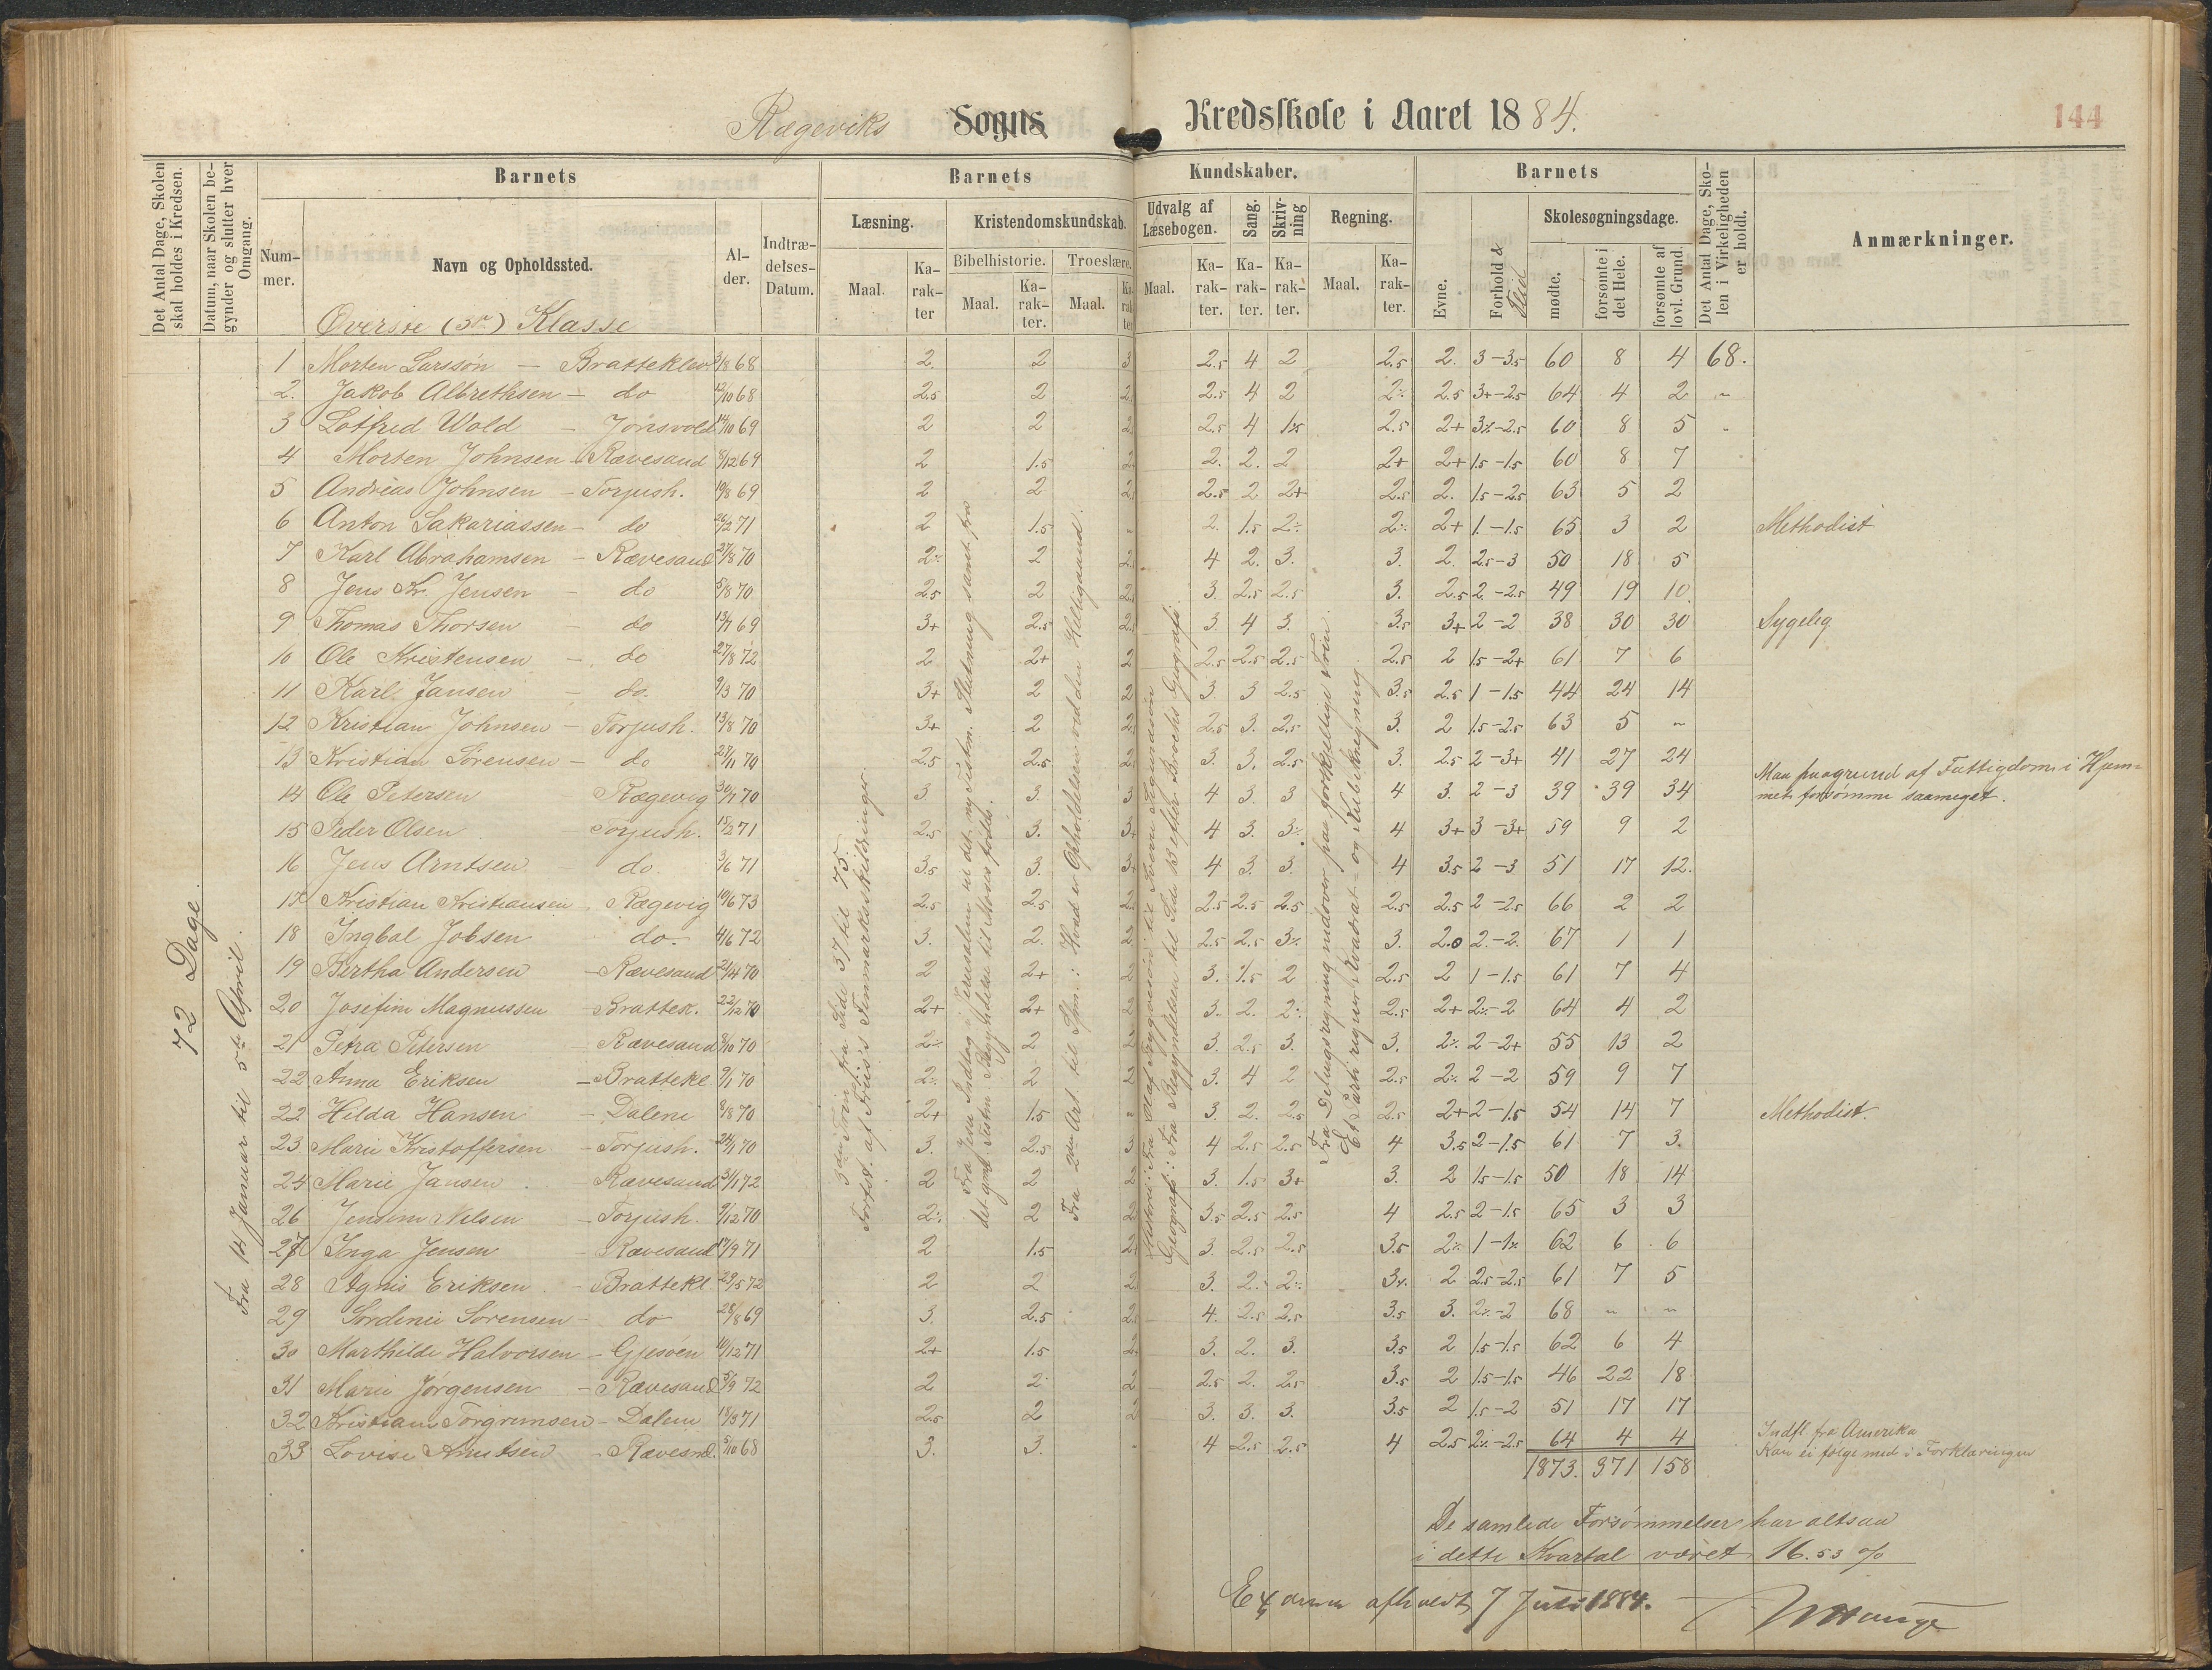 Rægeviks Sogns Kredsskole i Aaret 1884.
144
Det Antal Dage, Skolen skal holdes i Kredsen.
Datum, naar Skolen begynder og slutter hver Omgang.
Barnets
Barnets
Kundskaber.
Barnets
Det Antal Dage, Skolen i Virkeligheden er holdt.
Anmærkninger.
Nummer.
Navn og Opholdssted.
Alder.
Indtrædelses-Datum.
Læsning.
Kristendomskundskab.
Udvalg af Læsebogen.
Sang.
Skrivning
Regning.
Evne.
Forhold & Flid
Skolesøgningsdage.
Bibelhistorie.
Troeslære.
Maal.
Karakter
Maal.
Karakter.
Maal.
Karakter
Maal.
Karakter.
Karakter.
Karakter.
Maal.
Karakter.
mødte.
forsømte i det Hele.
forsømte af lovl. Grund.
Øverste (3die) Klasse
72 Dage.
Fra 14 Januar til 5te April.
1 Morten Larssøn – Bratteklev 3/8 68 2. 2 3 2.5 4 2 2.5 2. 3 – 3.5 60 8 4 68.
2. Jakob Albrethsen – do 12/10 68 2.5 2 2. 2.5 4 2 2÷ 2.5 3+ – 2.5 64 4 2 "
3 Lotfred Wold – Jørisvold 14/10 69 2 2 2. 2.5 4 1÷ 2.5 2+ 3÷ – 2.5 60 8 5 "
4 Morten Johnsen – Rævesand 8/12 69 2 1.5 2+ 2. 2. 2 2+ 2+ 1.5 – 1.5 60 8 7
5 Andreas Johnsen – Torjush. 19/8 69 2 2 2. 2.5 2 2+ 2.5 2. 1.5 – 2.5 63 5 2
6 Anton Sakariassen – do 26/2 71 2 1.5 – 2. 1.5 2÷ 2÷ 2+ 1 – 1.5 65 3 2 Methodist
7 Karl Abrahamsen – Rævesand 27/8 70 2÷ 2 2. 4 2. 3. 3. 2. 2.5 – 3 50 18 5
8 Jens Kr. Jensen – do 5/8 70 2.5 2 2. 3. 2.5 2.5 3. 2.5 2 – 2.5 49 19 10.
9 Thomas Thorsen – do 13/7 69 3+ 2.5 2. 3. 4 3. 3.5 3+ 2 – 2 38 30 30 Sygelig
10 Ole Kristensen – do 27/8 72 2 2+ 2 2.5 2.5 2.5 2.5 2 1.5 – 2+ 61 7 6
11 Karl Jansen – do. 9/3 70 3+ 2 2 3. 3 2.5 3.5 2.5 1 – 1.5 44 24 14
12 Kristian Johnsen – Torjush. 13/8 70 3+ 2 2. 2.5 3. 2.5 3. 2 1.5 – 2.5 63 5 "
13 Kristian Sørensen – do 27/11 70 2.5 2.5 2. 3. 3. 2.5 3. 2.5 2 – 3+ 41 27 24
14 Ole Petersen Rægevig 30/7 70 3 3. 3 4 3. 3 4 3. 2 – 3 39 39 34 Maa paagrund af Fattigdom i Hjemmet forsømme saameget.
15 Peder Olsen – Torjush. 15/2 71 2.5 3. 3+ 4 3. 3÷ 4 3+ 3 – 3+ 59 9 2
16 Jens Arntsen – do. 3/6 71 3.5 3. 3+ 4 3. 3. 4 3.5 2 – 3 51 17 12.
17 Kristian Kristiansen Rægevig 10/6 73 2.5 2.5 2. 2.5 2.5 2.5 2.5 2.5 2 – 2.5 66 2 2
18 Ingbal Jobsen do. 4/6 72 3. 2. 2 2.5 2.5 3÷ 3. 2.0 2. – 2. 67 1 1
19 Bertha Andersen – Rævesand 2/4 70 2 2+ 2 3. 1.5 2 2.5 2 1 – 1.5 61 7 4
20 Josefine Magnussen – Brattek. 22/12 70 2+ 2+ 2 3. 2. 2÷ 2.5 2+ 2÷ – 2 64 4 2
21 Petra Petersen – Rævesand 9/10 70 2÷ 2 2 3. 2.5 3. 3. 2÷ 2 – 2+ 55 13 2
22 Anna Eriksen – Brattekl 9/1 70 2÷ 2 2 3. 4 2 2.5 2÷ 2 – 2 59 9 7
22 Hilda Hansen – Dalene 9/8 70 2+ 1.5 " 3 2. 2.5 2.5 2+ 2 – 1.5 54 14 7 Methodist.
23 Marie Kristoffersen – Torjush. 24/1 70 3. 2.5 3 4 2.5 2.5 4 3.5 2 – 1.5 61 7 3.
24 Marie Jansen – Rævesand 31/1 72 2 2 2 3. 1.5 3+ 3. 2 1.5 – 1.5 50 18 14
26 Jensine Nilsen – Torjush. 9/12 70 2÷ 2 2. 3.5 2.5 2.5 4 2.5 2 – 1.5 65 3 3
27 Inga Jensen – Rævesand 17/9 71 2 1.5 2+ 3. 2.5 2.5 3.5 2÷ 1 – 1÷ 62 6 6
28 Agnis Eriksen – Brattekl 29/5 72 2 2 2. 3. 2. 2÷ 3÷ 2 2.5 – 2.5 61 7 5
29 Sørdinie Sørensen – do 28/8 69 3. 2.5 2. 4. 2.5 2.5 3.5 3. 2÷ – 2 68 " "
30 Marthilde Halvorsen – Gjesøen 10/12 71 2+ 1.5 2+ 3. 2. 3. 3.5 2 1.5 – 1.5 62 6 4
31 Marie Jørgensen – Rævesand 5/9 72 2 2 2 2.5 2. 2.5 3.5 2 1.5 – 1.5 46 22 18
32 Kristiane Torgrimsen – Dalene 18/3 71 2.5 2 2 3. 3. 3. 3.5 2 1.5 – 2 51 17 17
33 Lovise Knutsen – Rævesnd. 5/10 68 3. 3. – 4 2.5 2.5 4 2.5 2÷ – 2.5 64 4 4 Indfl. fra Amerika Kan ei følge med i Forklaringen
1873. 371 158
3die Trin: fra Side 37 til 75.
Fortst. af Friis's Finmarksskildringer.
Fra Jesu Indtog i Jerusalem til det ny Testm. Slutning samt fra
det gml. Testm. Begyndelse til Moses fødes.
Fra 2den Art. til Spm.: Hvad er Opholdelsen ved den Helligaand.
Historie: Fra Olaf Trygvesøn til Sverre Sigurdssøn
Geografi: Fra Begyndelsen til Side 13 efter Brochs Geografi.
Fra Delingsregning nedover paa forskjellige Trin.
Et Parti regner Kvadrat- og Kubikregning.
De samlede Forsømmelser har altsaa
i dette Kvartal været 16.53 %
Examen afholdt 7 Juli 1884.